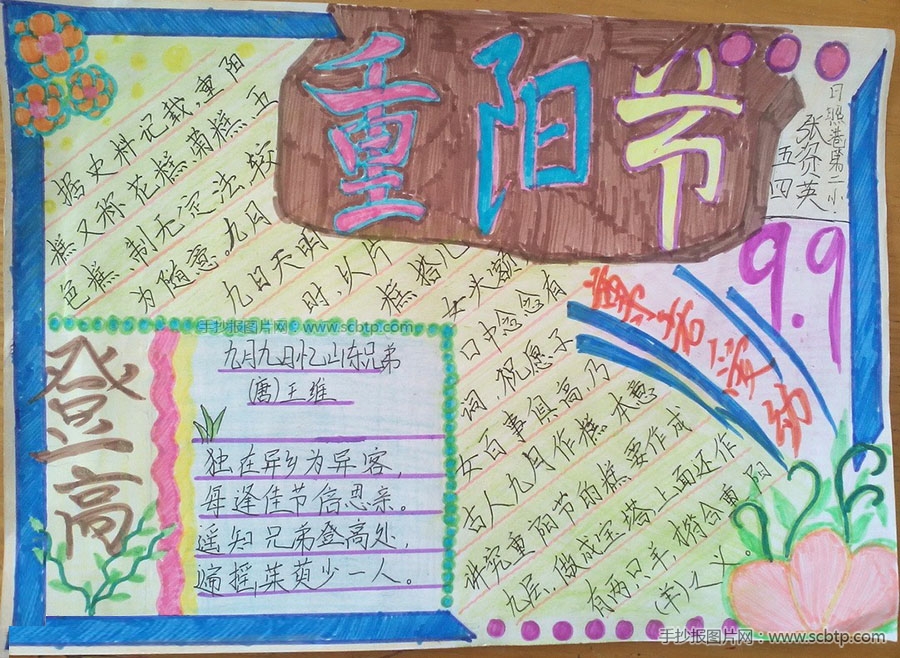 重阳节
日照港第二小
张资英
五
四
9.9
据史料记载,重阳
糕又称花糕、菊糕、五
色糕,制无定法,较
为随意。九月
九日天明
时,以片
糕搭儿
女头额
口中念念有
词,祝愿子
女百事俱高,乃
古人九月作糕本意
讲究重阳节的糕要作成
九层,做成宝塔,上面还作
有两只羊,揆合重阳
(羊)之义。
登高
九月九日忆山东兄弟
(唐)王维
独在异乡为异客,
每逢佳节倍思亲。
遥知兄弟登高处,
遍摇茱萸少一人。
手抄报图片网:www.scbtp.com
手抄报图片网:www.scbtp.com